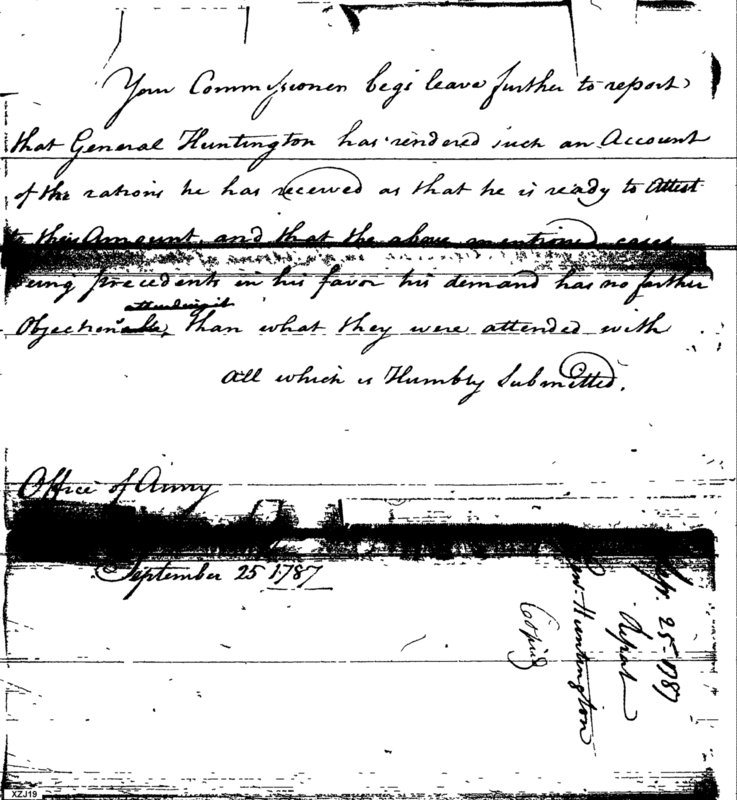 Your Commissioner begs leave further to report
that General Huntington has rendered such an Account
of the rations he has received as that he is ready to Attest
to their Amount, and that the above mentioned cases
being precedents in his favor his demand has no further
attending it
Objection able, than what they were attended with
All which is Humbly Submitted.
Office of Army
September 25 1787
Sepr. 25 1787
Report
Genl Huntington
Copied
XZJ19